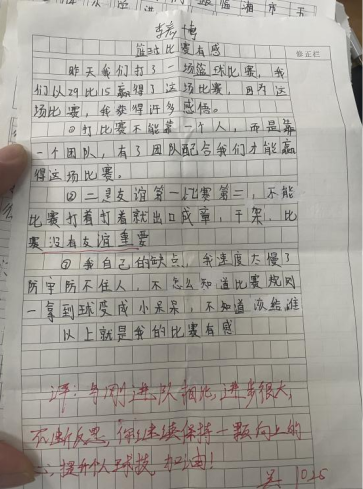 李彦博
篮球比赛有感
修正栏
昨天我们打了一场篮球比赛，我
们以29比15赢得了这场比赛，因为这
场比赛，我获得许多感悟。
①打比赛不能靠一个人，而是靠
一个团队，有了团队配合我们才能赢
得这场比赛。
②二是友谊第一比赛第二，不能
比赛打着打着就出口成章，干架，比
赛没有友谊重要
③我自己的缺点，我速度太慢了
防守防不住人，不怎么知道比赛规则
一拿到球变成小呆呆，不知道该给谁
以上就是我的比赛有感
评：与刚进队相比，进步很大，
不断反思，你继续保持一颗向上的
心，提升个人球技，加油！
吴 10.15